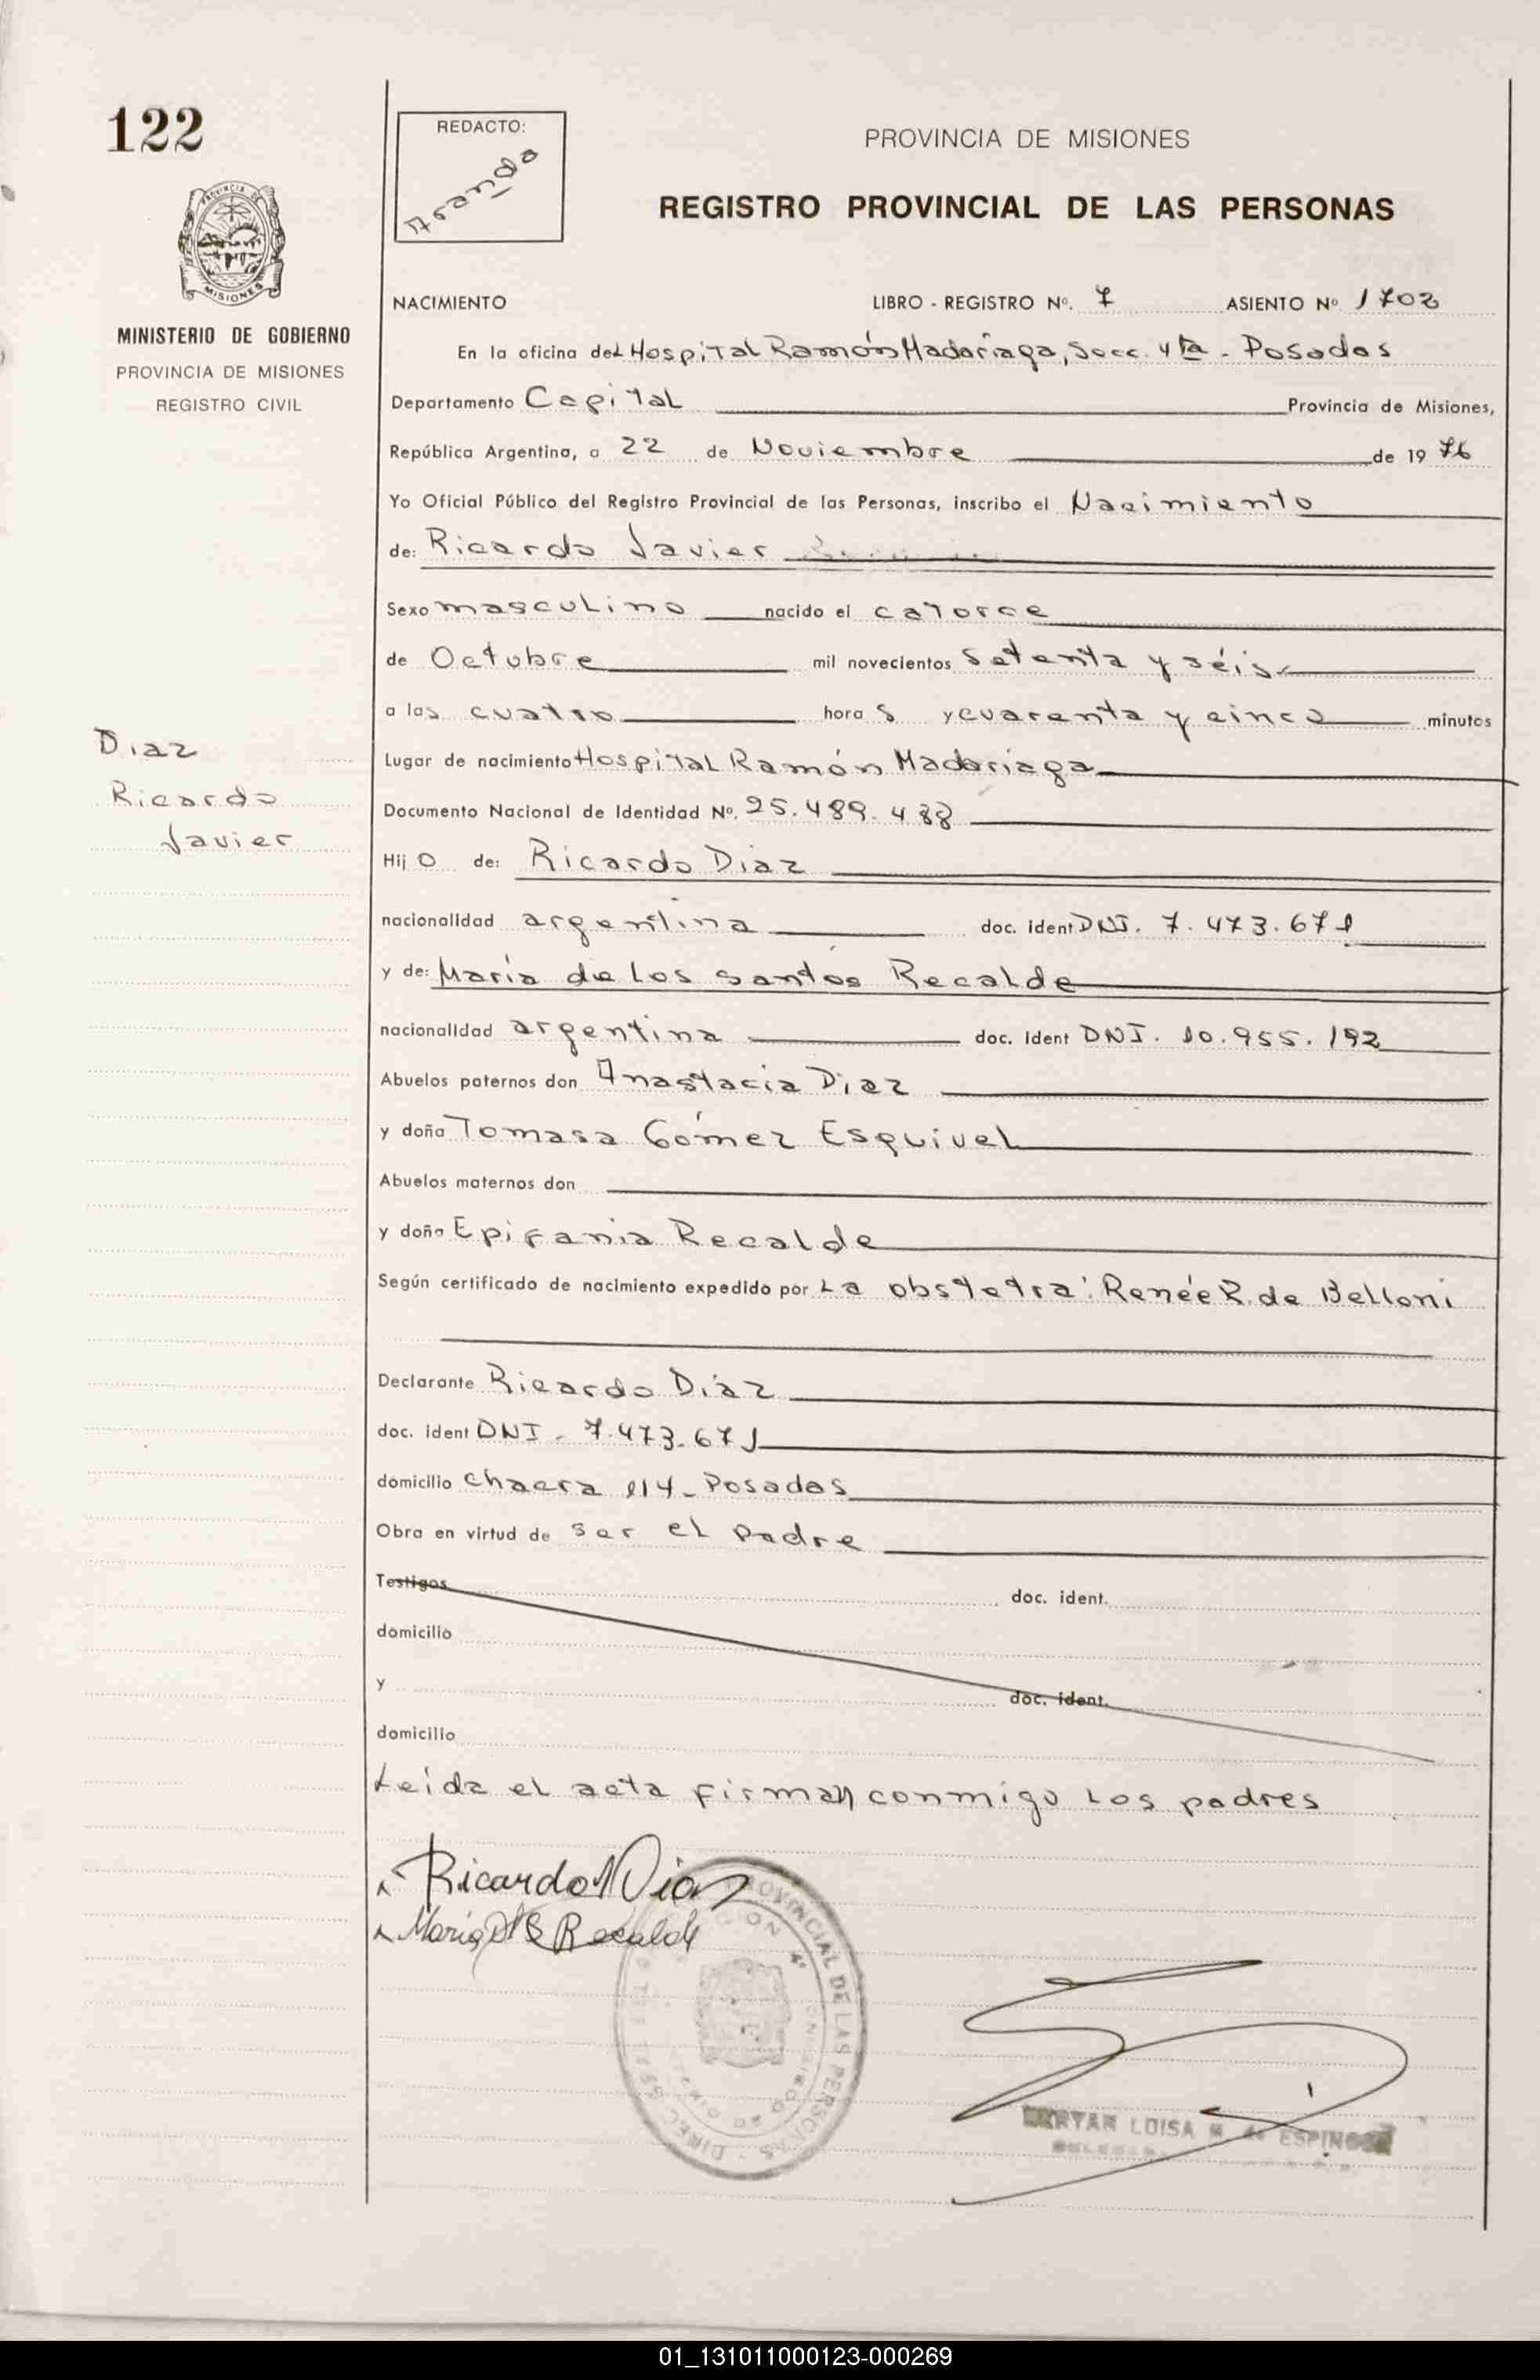 122
REDACTO:
Aranda
PROVINCIA DE MISIONES
REGISTRO PROVINCIAL DE LAS PERSONAS
PROVINCIA DE
MISIONES
MINISTERIO DE GOBIERNO
PROVINCIA DE MISIONES
REGISTRO CIVIL
NACIMIENTO LIBRO - REGISTRO Nº. 7 ASIENTO Nº 1702
En la oficina del Hospital Ramón Madariaga, Secc. 4ta - Posadas
Departamento Capital Provincia de Misiones,
República Argentina, a 22 de Noviembre de 1976
Yo Oficial Público del Registro Provincial de las Personas, inscribo el Nacimiento
de: Ricardo Javier
Sexo masculino nacido el catorce
de Octubre mil novecientos setenta y séis
a las cuatro hora s y cuarenta y cinco minutos
Diaz
Ricardo
Javier
Lugar de nacimiento Hospital Ramón Madariaga
Documento Nacional de Identidad Nº. 25.489.488
Hij o de: Ricardo Diaz
nacionalidad argentina doc. ident DNI. 7.473.671
y de: María de los santos Recalde
nacionalidad argentina doc. ident DNI. 10.955.192
Abuelos paternos don Anastacia Diaz
y doña Tomasa Gómez Esquivel
Abuelos maternos don
y doña Epifania Recalde
Según certificado de nacimiento expedido por La obstetra: Renée R. de Belloni
Declarante Ricardo Díaz
doc. ident DNI - 7.473.671
domicilio chacra 114 - Posadas
Obra en virtud de ser el padre
Testigos doc. ident.
domicilio
y doc. ident.
domicilio
Leída el acta firman conmigo los padres
Ricardo Diaz
María Recalde
PROVINCIAL DE LAS PERSONAS - DIREC
LUISA M. de ESPINOSA
01_131011000123-000269